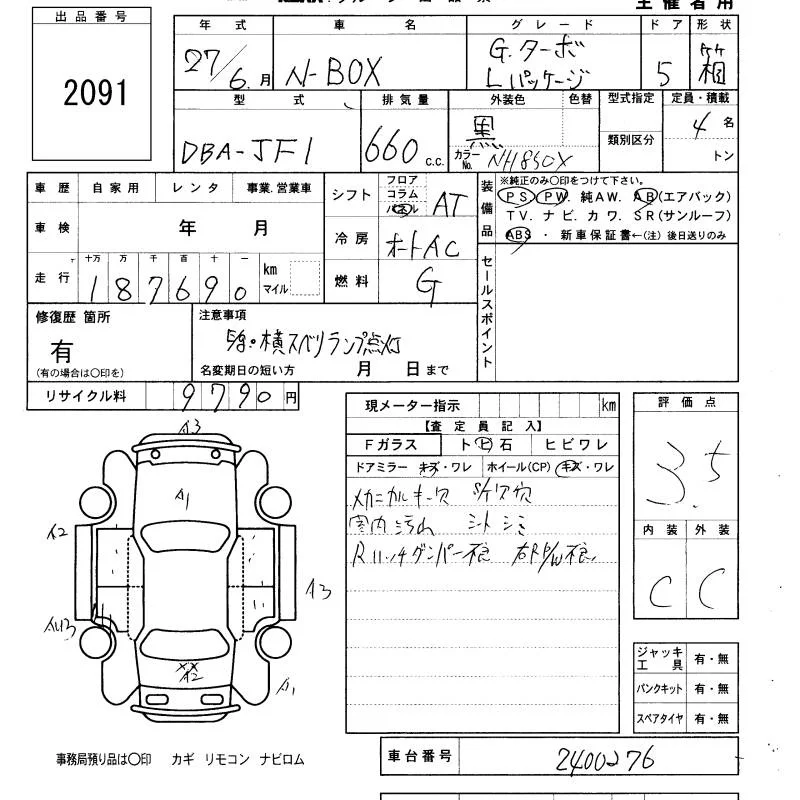 主催者用
出品番号
2091
年式 車名 グレード ドア 形状
27/6.月 N-BOX G.ターボ Lパッケージ 5 箱
型式 排気量 外装色 色替 型式指定 定員・積載
類別区分
DBA-JF1 660 c.c. 黒 カラーNo. NH850X 4名
トン
車歴 自家用 レンタ 事業.営業車
車検 年 月
走行 十万 万 千 百 十 一
187690 km マイル
シフト フロア コラム パネル AT
冷房 オートAC
燃料 G
装備品
※純正のみ〇印をつけて下さい。
PS. PW. 純AW. AB(エアバック)
TV. ナビ. カワ. SR(サンルーフ)
ABS ・ 新車保証書←(注) 後日送りのみ
セールスポイント
修復歴 箇所
有
(有の場合は〇印を)
注意事項
横スベリランプ点灯
名変期日の短い方 月 日まで
リサイクル料 9790円
現メーター指示 km
【査定員記入】
Fガラス トビ石 ヒビワレ
ドアミラー キズ・ワレ ホイール(CP) キズ・ワレ
メカニカルキー欠 S/T欠穴
室内汚れ シートシミ
Rハッチダンパー不良 右R P/W不良
評価点
3.5
内装 外装
C C
ジャッキ工具 有・無
パンクキット 有・無
スペアタイヤ 有・無
A3
A1
A2
A3
AU3
XX
A2
A1
事務局預り品は〇印 カギ リモコン ナビロム
車台番号 2400276